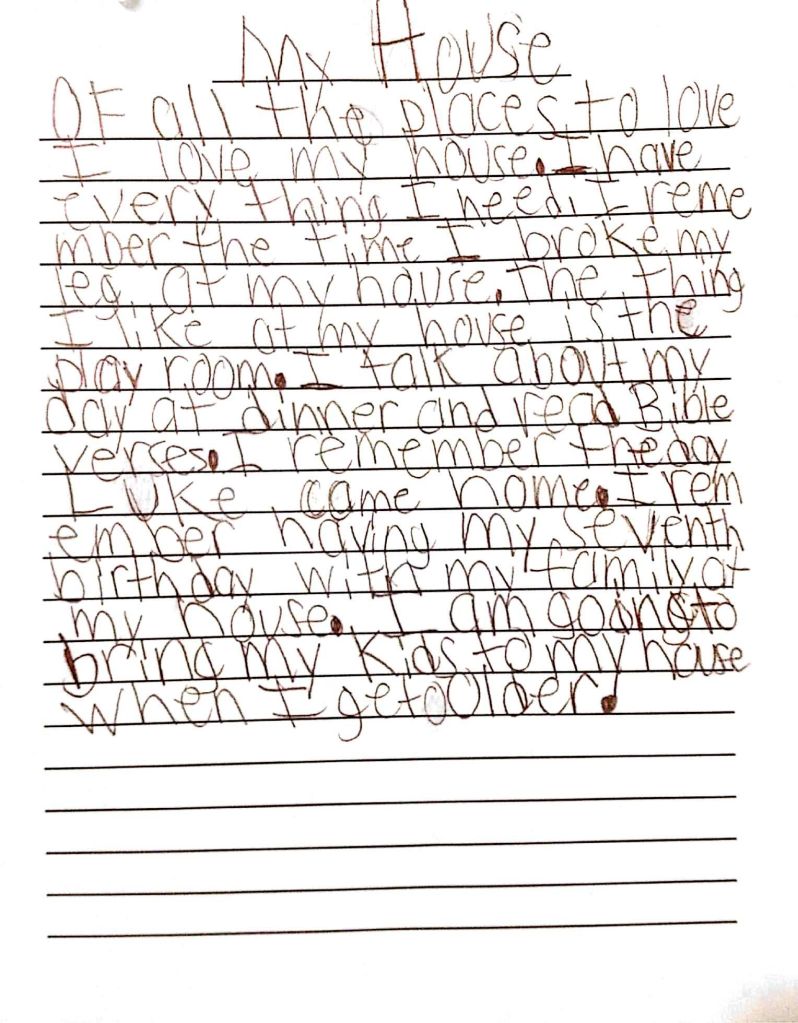 My House
Of all the places to love
I love my house. I have
every thing I need. I reme
mber the time I broke my
leg at my house. The thing
I like at my house is the
play room. I talk about my
day at dinner and read Bible
verses. I remember the day
Luke came home. I rem
ember having my seventh
birthday with my family at
my house. I am going to
bring my kids to my house
when I get older.